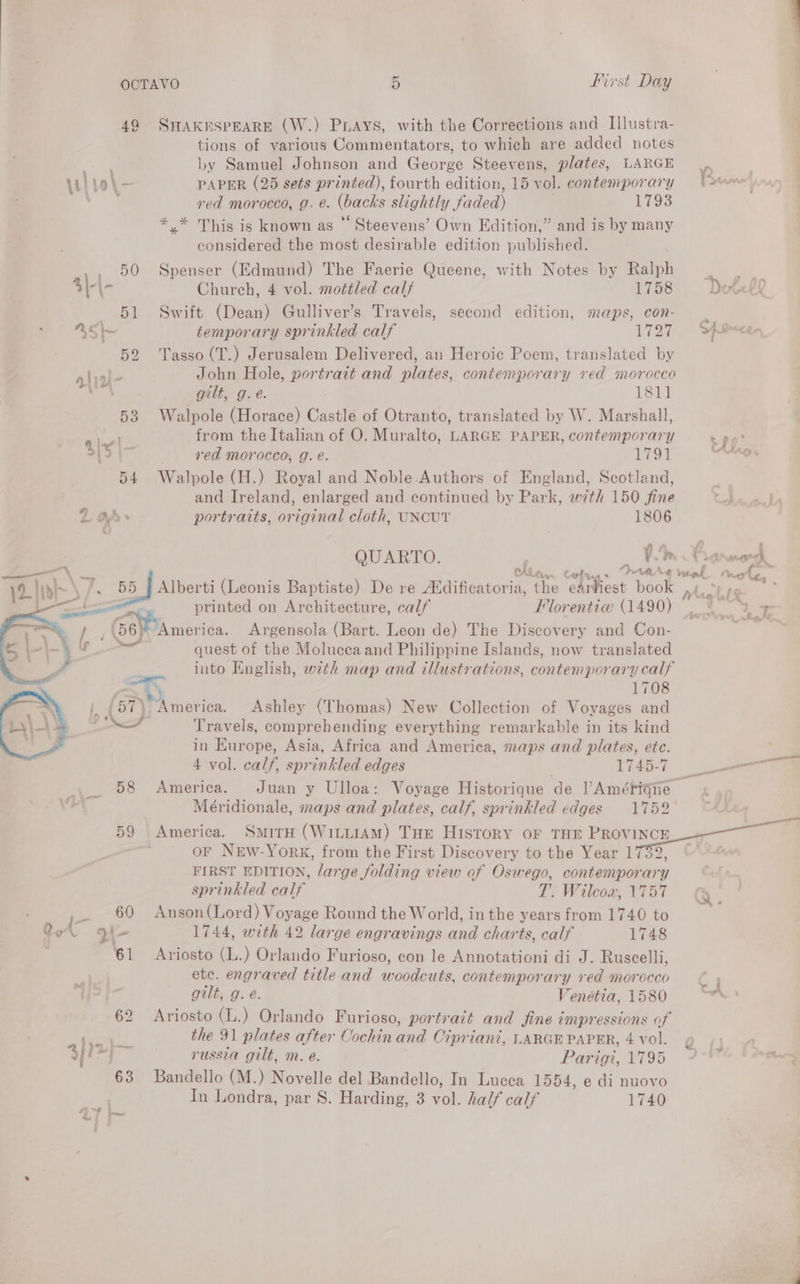 OCTAVO 5 First Day
49 SHAKESPEARE (W.) PLAYS, with the Corrections and Illustra-
tions of various Commentators, to which are added notes
by Samuel Johnson and George Steevens, plates, LARGE
PAPER (25 sets printed), fourth edition, 15 vol. contemporary
red morocco, g. e. (backs slightly faded) 1793
*⁎* This is known as “Steevens’ Own Edition,” and is by many
considered the most desirable edition published.
50 Spenser (Edmund) The Faerie Queene, with Notes by Ralph
Church, 4 vol. mottled calf 1758
51 Swift (Dean) Gulliver’s Travels, second edition, maps, con-
temporary sprinkled calf 1727
52 Tasso (T.) Jerusalem Delivered, an Heroic Poem, translated by
John Hole, portrait and plates, contemporary red morocco
gilt, g. e. 1811
53 Walpole (Horace) Castle of Otranto, translated by W. Marshall,
from the Italian of O. Muralto, LARGE PAPER, contemporary
red morocco, g. e. 1791
54 Walpole (H.) Royal and Noble Authors of England, Scotland,
and Ireland, enlarged and continued by Park, with 150 fine
portraits, original cloth, UNCUT 1806
QUARTO.
55 Alberti (Leonis Baptiste) De re Ædificatoria, the earliest book
printed on Architecture, calf Florentiæ (1490)
56 America. Argensola (Bart. Leon de) The Discovery and Con-
quest of the Molucca and Philippine Islands, now translated
into English, with map and illustrations, contemporary calf
1708
57 America. Ashley (Thomas) New Collection of Voyages and
Travels, comprehending everything remarkable in its kind
in Europe, Asia, Africa and America, maps and plates, etc.
4 vol. calf, sprinkled edges 1745-7
58 America. Juan y Ulloa: Voyage Historique de l’Amérique
Méridionale, maps and plates, calf, sprinkled edges 1752
59 America. SMITH (WILLIAM) THE HISTORY OF THE PROVINCE
OF NEW-YORK, from the First Discovery to the Year 1732,
FIRST EDITION, large folding view of Oswego, contemporary
sprinkled calf T. Wilcox, 1757
60 Anson (Lord) Voyage Round the World, in the years from 1740 to
1744, with 42 large engravings and charts, calf 1748
61 Ariosto (L.) Orlando Furioso, con le Annotationi di J. Ruscelli,
etc. engraved title and woodcuts, contemporary red morocco
gilt, g. e. Venetia, 1580
62 Ariosto (L.) Orlando Furioso, portrait and fine impressions of
the 91 plates after Cochin and Cipriani, LARGE PAPER, 4 vol.
russia gilt, m. e. Parigi, 1795
63 Bandello (M.) Novelle del Bandello, In Lucca 1554, e di nuovo
In Londra, par S. Harding, 3 vol. half calf 1740